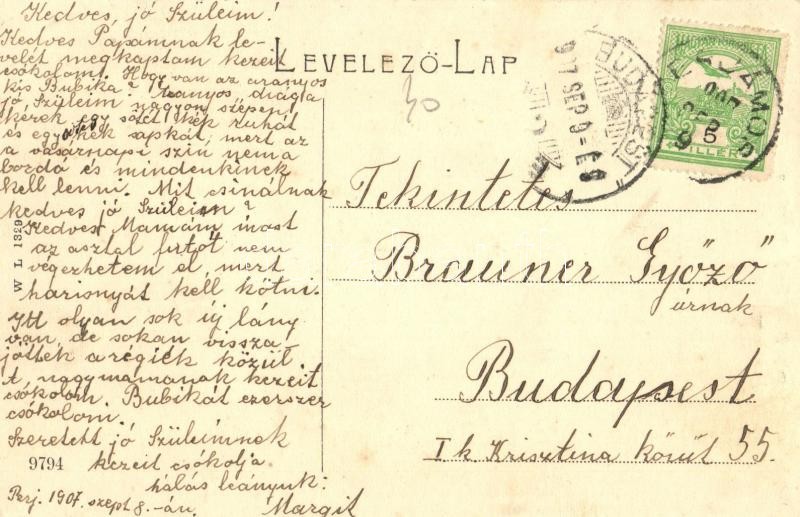 Kedves, jó Szüleim!
Kedves Papámnak le-
velét megkaptam kezeit
csókolom. Hogy van az aranyos
kis Bubika? Aranyos, drága
jó Szüleim nagyon szépen
kérek egy sötét kék ruhát
és egy kék sapkát, mert az
a vasárnapi szin nem a
bordó és mindenkinek
kell lenni. Mit csinálnak
kedves jó Szüleim?
Kedves Mamám most
az asztal futót nem
végezhetem el, mert
harisnyát kell kötni.
Itt olyan sok új lány
van, de sokan vissza
jöttek a régiek közül
t, nagymamának kezeit
csókolom. Bubikát ezerszer
csókolom.
Szeretett jó Szüleimnek
kezeit csókolja
hálás leányuk:
Margit
Perj. 1907. szept 8.-án.
9794
W L 1329
LEVELEZŐ-LAP
30
BUDAPEST
907 SEP 9
MAGYAR KIR. POSTA
907 SEP 8
5
FILLÉR
Tekintetes
Brauner Győző
úrnak
Budapest
I k Krisztina körút 55.